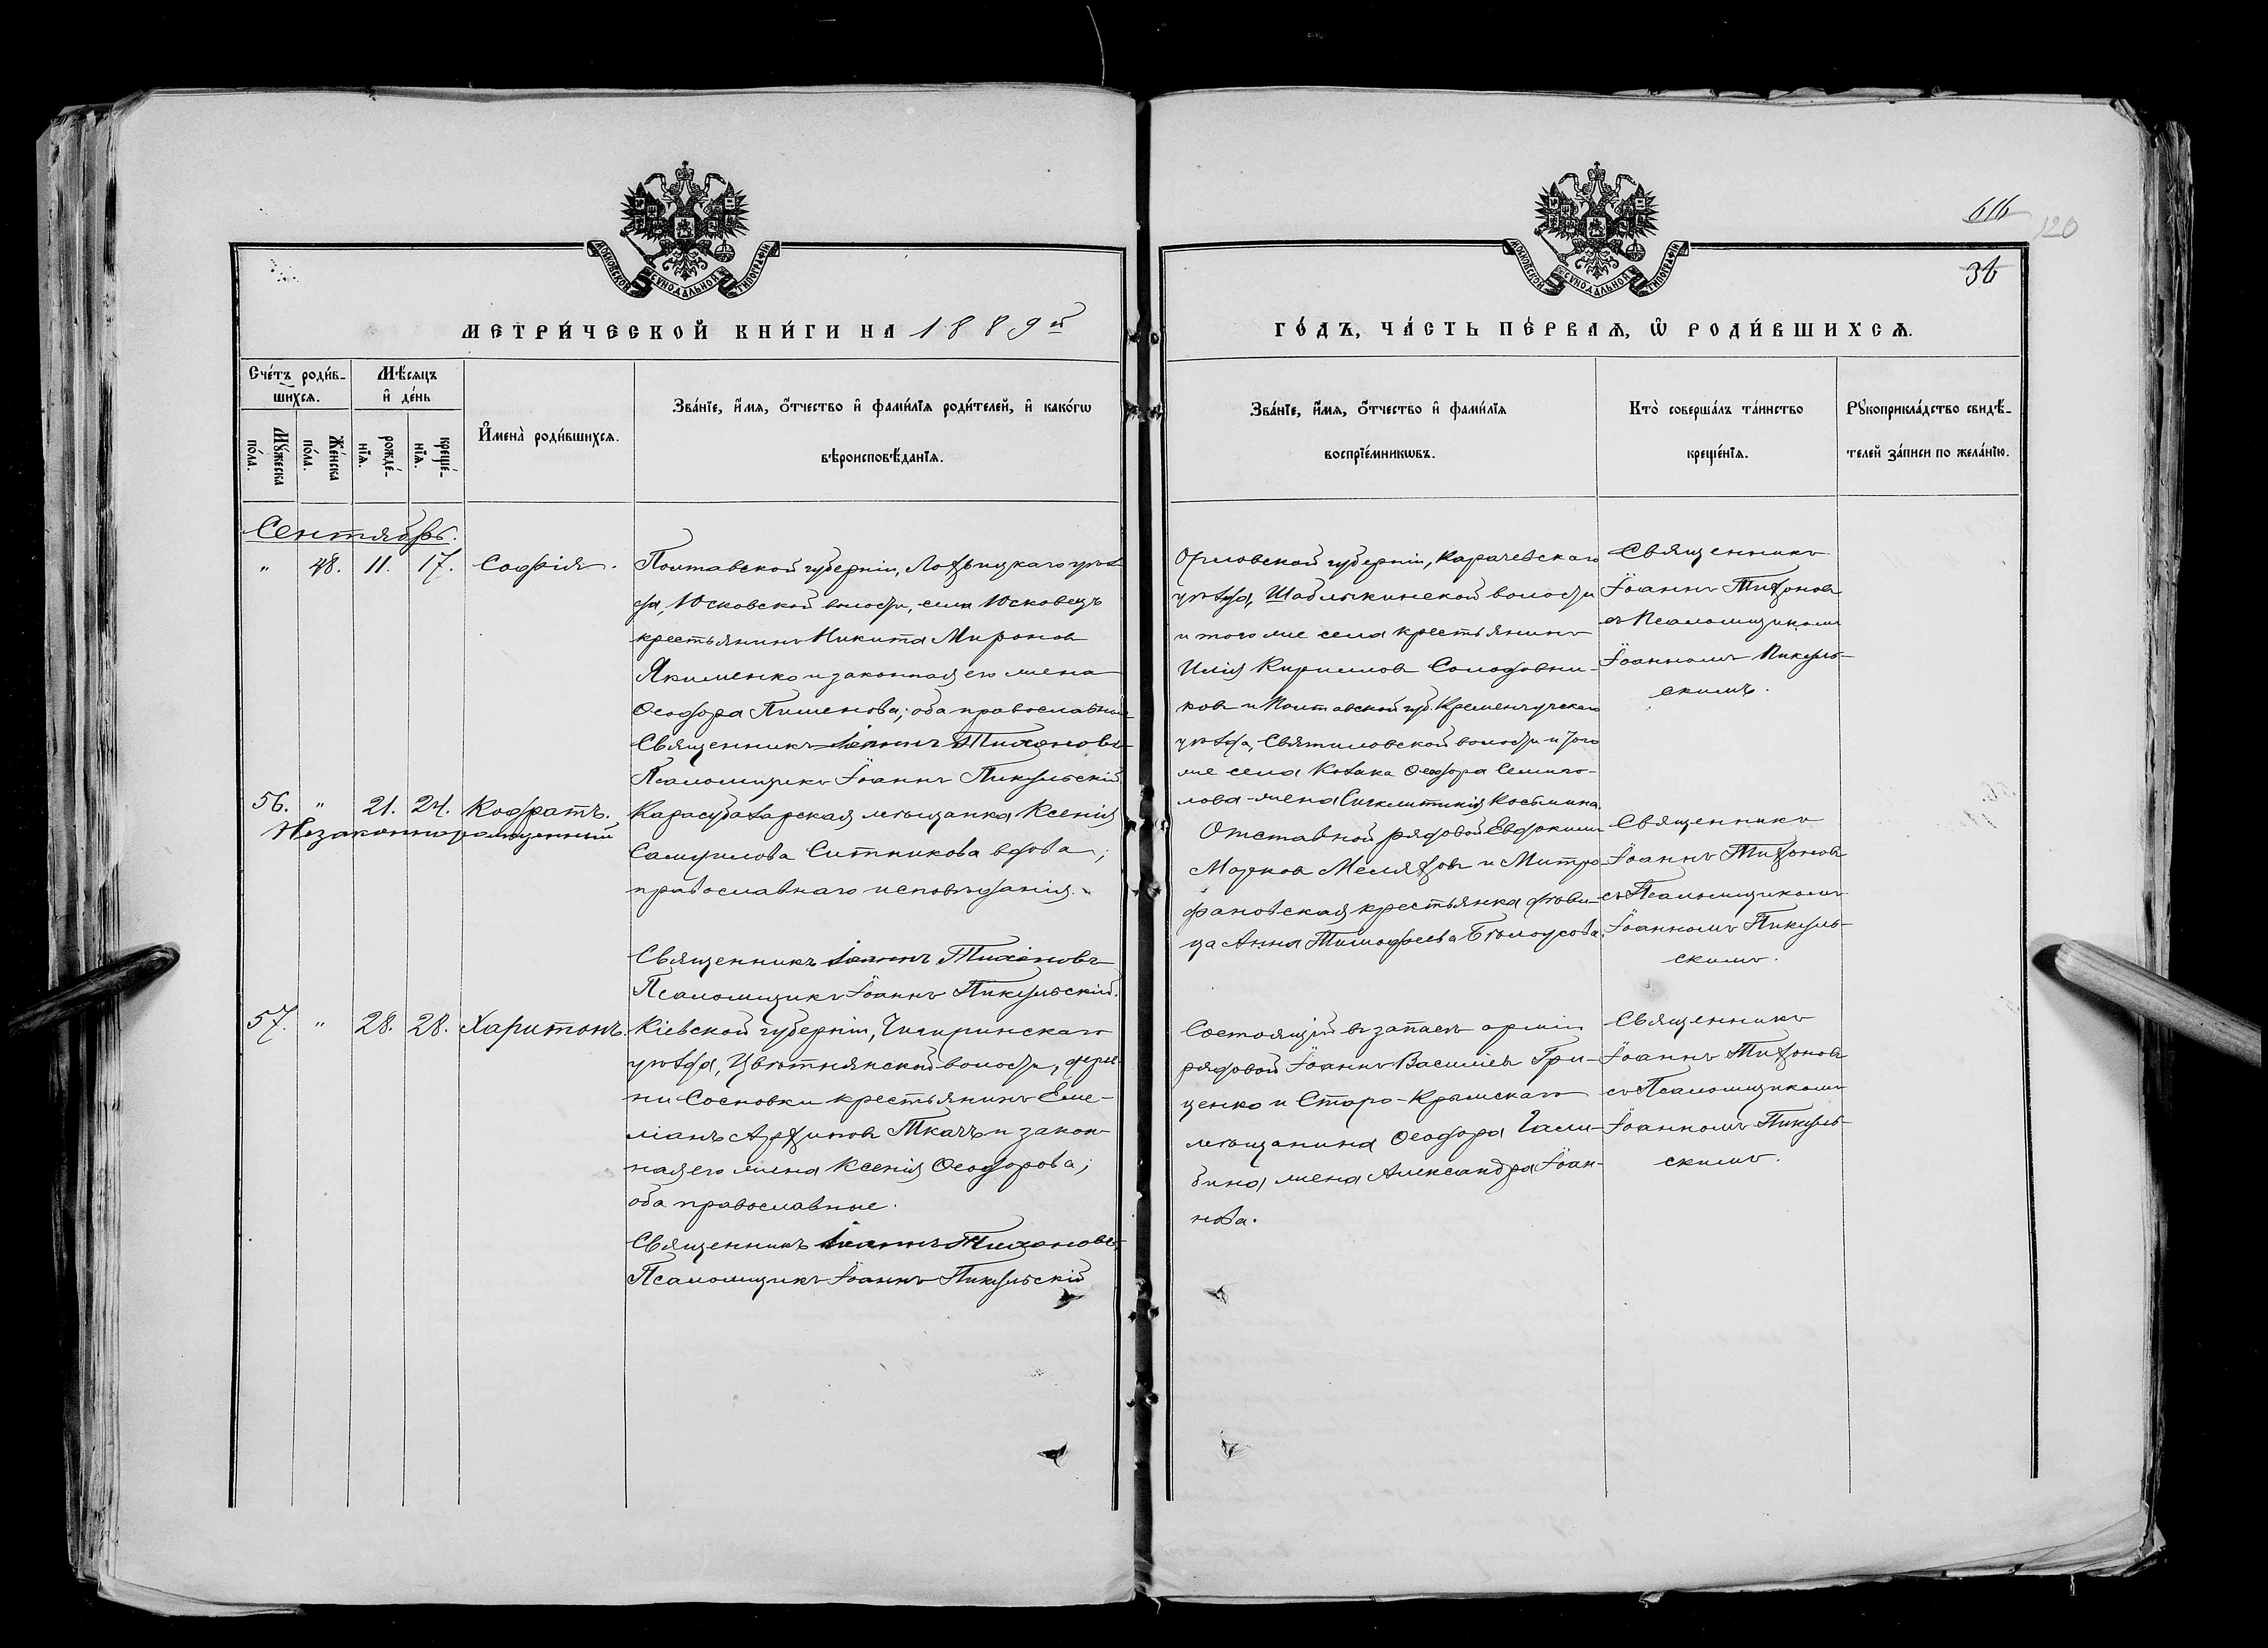 616
120
36
МОСКОВСКОЙ СѴНОДАЛЬНОЙ ТИПОГРАФІИ
МОСКОВСКОЙ СѴНОДАЛЬНОЙ ТИПОГРАФІИ
МЕТРИ́ЧЕСКОЙ КНИ́ГИ НА 1889й
ГО́ДЪ, ЧА́СТЬ ПЕ́РВАѦ, Ѽ РОДИ́ВШИХСѦ.
Сче́тъ роди́в-
шихсѧ.
Мꙋ́жеска
по́ла.
Же́нска
по́ла.
Мѣ́сѧцъ
и҆ де́нь
рожде́-
нїѧ.
креще́-
нїѧ.
И҆мена̀ роди́вшихсѧ.
Зва́нїе, и҆́мѧ, ѻ҆́тчество и҆ фами́лїѧ роди́телей, и҆ како́гѡ
вѣроисповѣ́данїѧ.
Зва́нїе, и҆́мѧ, ѻ҆́тчество и҆ фами́лїѧ
воспрїе́мникѡвъ.
Кто̀ соверша́лъ та́инство
креще́нїѧ.
Рꙋкоприкла́дство свидѣ́-
телей за́писи по жела́нїю.
Сентябрь.
" 48. 11. 17. Софія.
Полтавской губерніи, Лохвицкаго уѣз
да, Юсковской волости, села Юсковецъ
крестьянинъ Никита Миронов
Якименко и законная его жена
Ѳеодора Пименова; оба православные
Священникъ Іоаннъ Тихоновъ
Псаломщикъ Іоаннъ Пикульскій
Орловской губерніи, Карачевскаго
уѣзда, Шаблыкинской волости
и того же села крестьянинъ
Илія Кириллов Солодовни-
ков и Полтавской губ. Кременчугскаго
уѣзда, Святиловской волости и того
же села козака Ѳеодора Семиго-
лова жена Сигклитикія Косьмина.
Священникъ
Іоаннъ Тихонов
съ Псаломщикомъ
Іоанномъ Пикуль-
скимъ.
56. " 21. 24. Кодратъ.
Незаконнорожденный
Карасубазарская мѣщанка Ксенія
Самуилова Ситникова вдова;
православнаго исповѣданія.
Священникъ Іоаннъ Тихоновъ
Псаломщикъ Іоаннъ Пикульскій.
Отставной рядовой Евдокимъ
Марков Меляхов и Митро
фановская крестьянка дѣви-
ца Анна Тимофеева Бѣлоусова.
Священникъ
Іоаннъ Тихонов
съ Псаломщикомъ
Іоанномъ Пикуль-
скимъ.
57. " 28. 28. Харитонъ.
Кіевской губерніи, Чигиринскаго
уѣзда, Цвѣтнянской волости, дерев
ни Сосновки крестьянинъ Еме-
ліанъ Архипов Ткачъ и закон-
ная его жена Ксенія Ѳеодорова;
оба православные.
Священникъ Іоаннъ Тихоновъ
Псаломщикъ Іоаннъ Пикульскій
Состоящій въ запасѣ арміи
рядовой Іоаннъ Васильев Гри-
ценко и Старо-Крымскаго
мѣщанина Ѳеодора
жена Александра Іоан-
нова.
Священникъ
Іоаннъ Тихонов
съ Псаломщикомъ
Іоанномъ Пикуль-
скимъ.